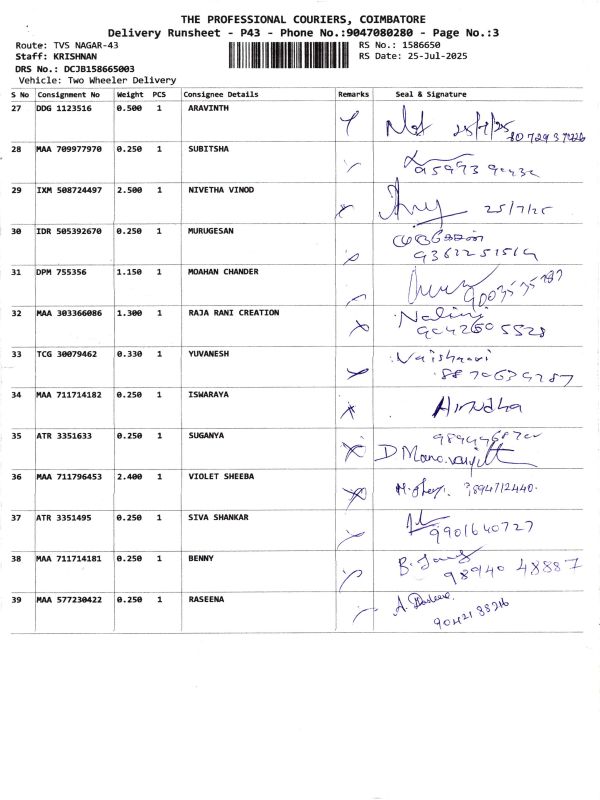 THE PROFESSIONAL COURIERS, COIMBATORE
Delivery Runsheet - P43 - Phone No.:9047080280 - Page No.:3
Route: TVS NAGAR-43
RS No.: 1586650
Staff: KRISHNAN
RS Date: 25-Jul-2025
DRS No.: DCJB158665003
Vehicle: Two Wheeler Delivery
S No Consignment No Weight PCS Consignee Details Remarks Seal & Signature
27 DDG 1123516 0.500 1 ARAVINTH
25/7/25
28 MAA 709977970 0.250 1 SUBITSHA
29 IXM 508724497 2.500 1 NIVETHA VINOD
25/7/25
30 IDR 505392670 0.250 1 MURUGESAN
முருகேசன்
9362251514
31 DPM 755356 1.150 1 MOAHAN CHANDER
9003535787
32 MAA 303366086 1.300 1 RAJA RANI CREATION
Nalini
9042605528
33 TCG 30079462 0.330 1 YUVANESH
Vaishnavi
8870639287
34 MAA 711714182 0.250 1 ISWARAYA
Hirudha
35 ATR 3351633 0.250 1 SUGANYA
D Manoranjitt
36 MAA 711796453 2.400 1 VIOLET SHEEBA
894712440
37 ATR 3351495 0.250 1 SIVA SHANKAR
9901640727
38 MAA 711714181 0.250 1 BENNY
98940 48887
39 MAA 577230422 0.250 1 RASEENA